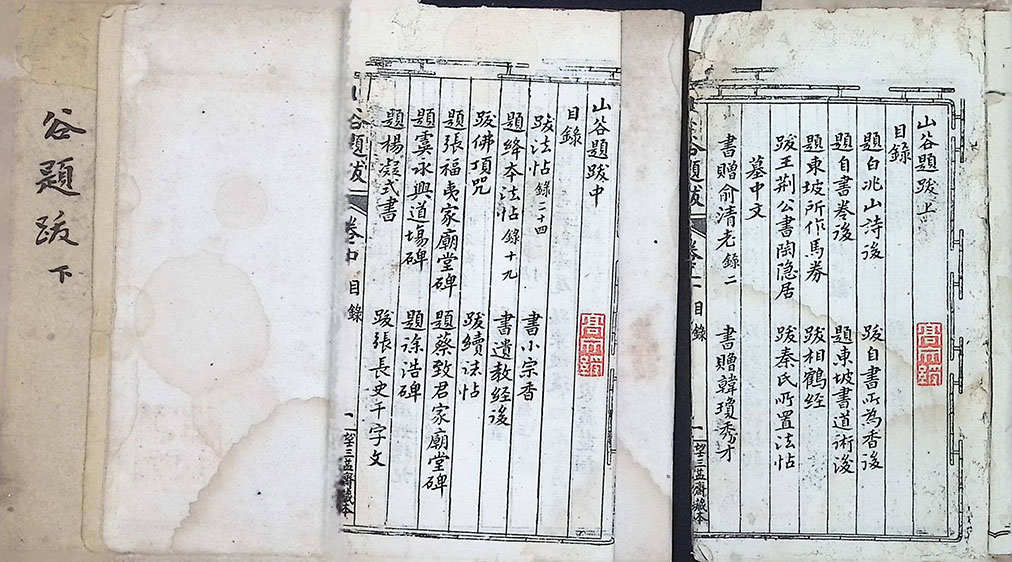 山谷題跋上
目錄
題白兆山詩後 跋自書所為香後
題自書卷後 題東坡書道術後
題東坡所作馬券 跋相鶴經
跋王荊公書陶隐居墓中文 跋秦氏所置法帖
書贈俞清老錄二 書贈韓瓊秀才
目錄
一 望三益齋藏本
山谷題跋中
目錄
跋法帖錄二十四 書小宗香
題絳本法帖錄十九 書遺教經後
跋佛頂咒 跋續法帖
題張福夷家廟堂碑 題蔡致君家廟堂碑
題虞永興道場碑 題徐浩碑
題楊凝式書 跋張長史千字文
谷題跋 卷中 目錄
一 望三益齋藏本
谷題跋下